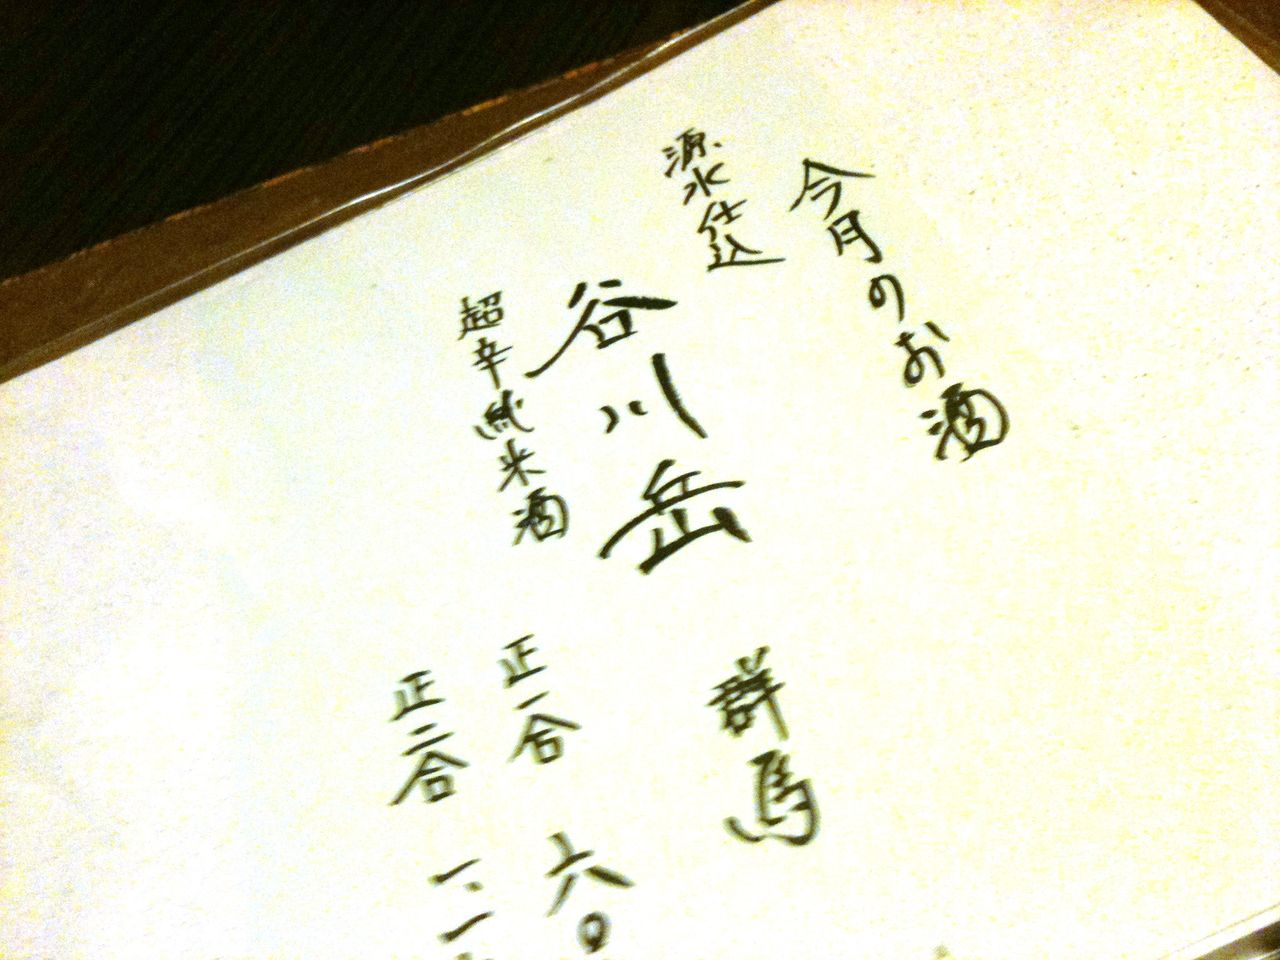 今月のお酒
源水仕込
谷川岳 群馬
超辛純米酒
正一合 六〇
正二合 一、一